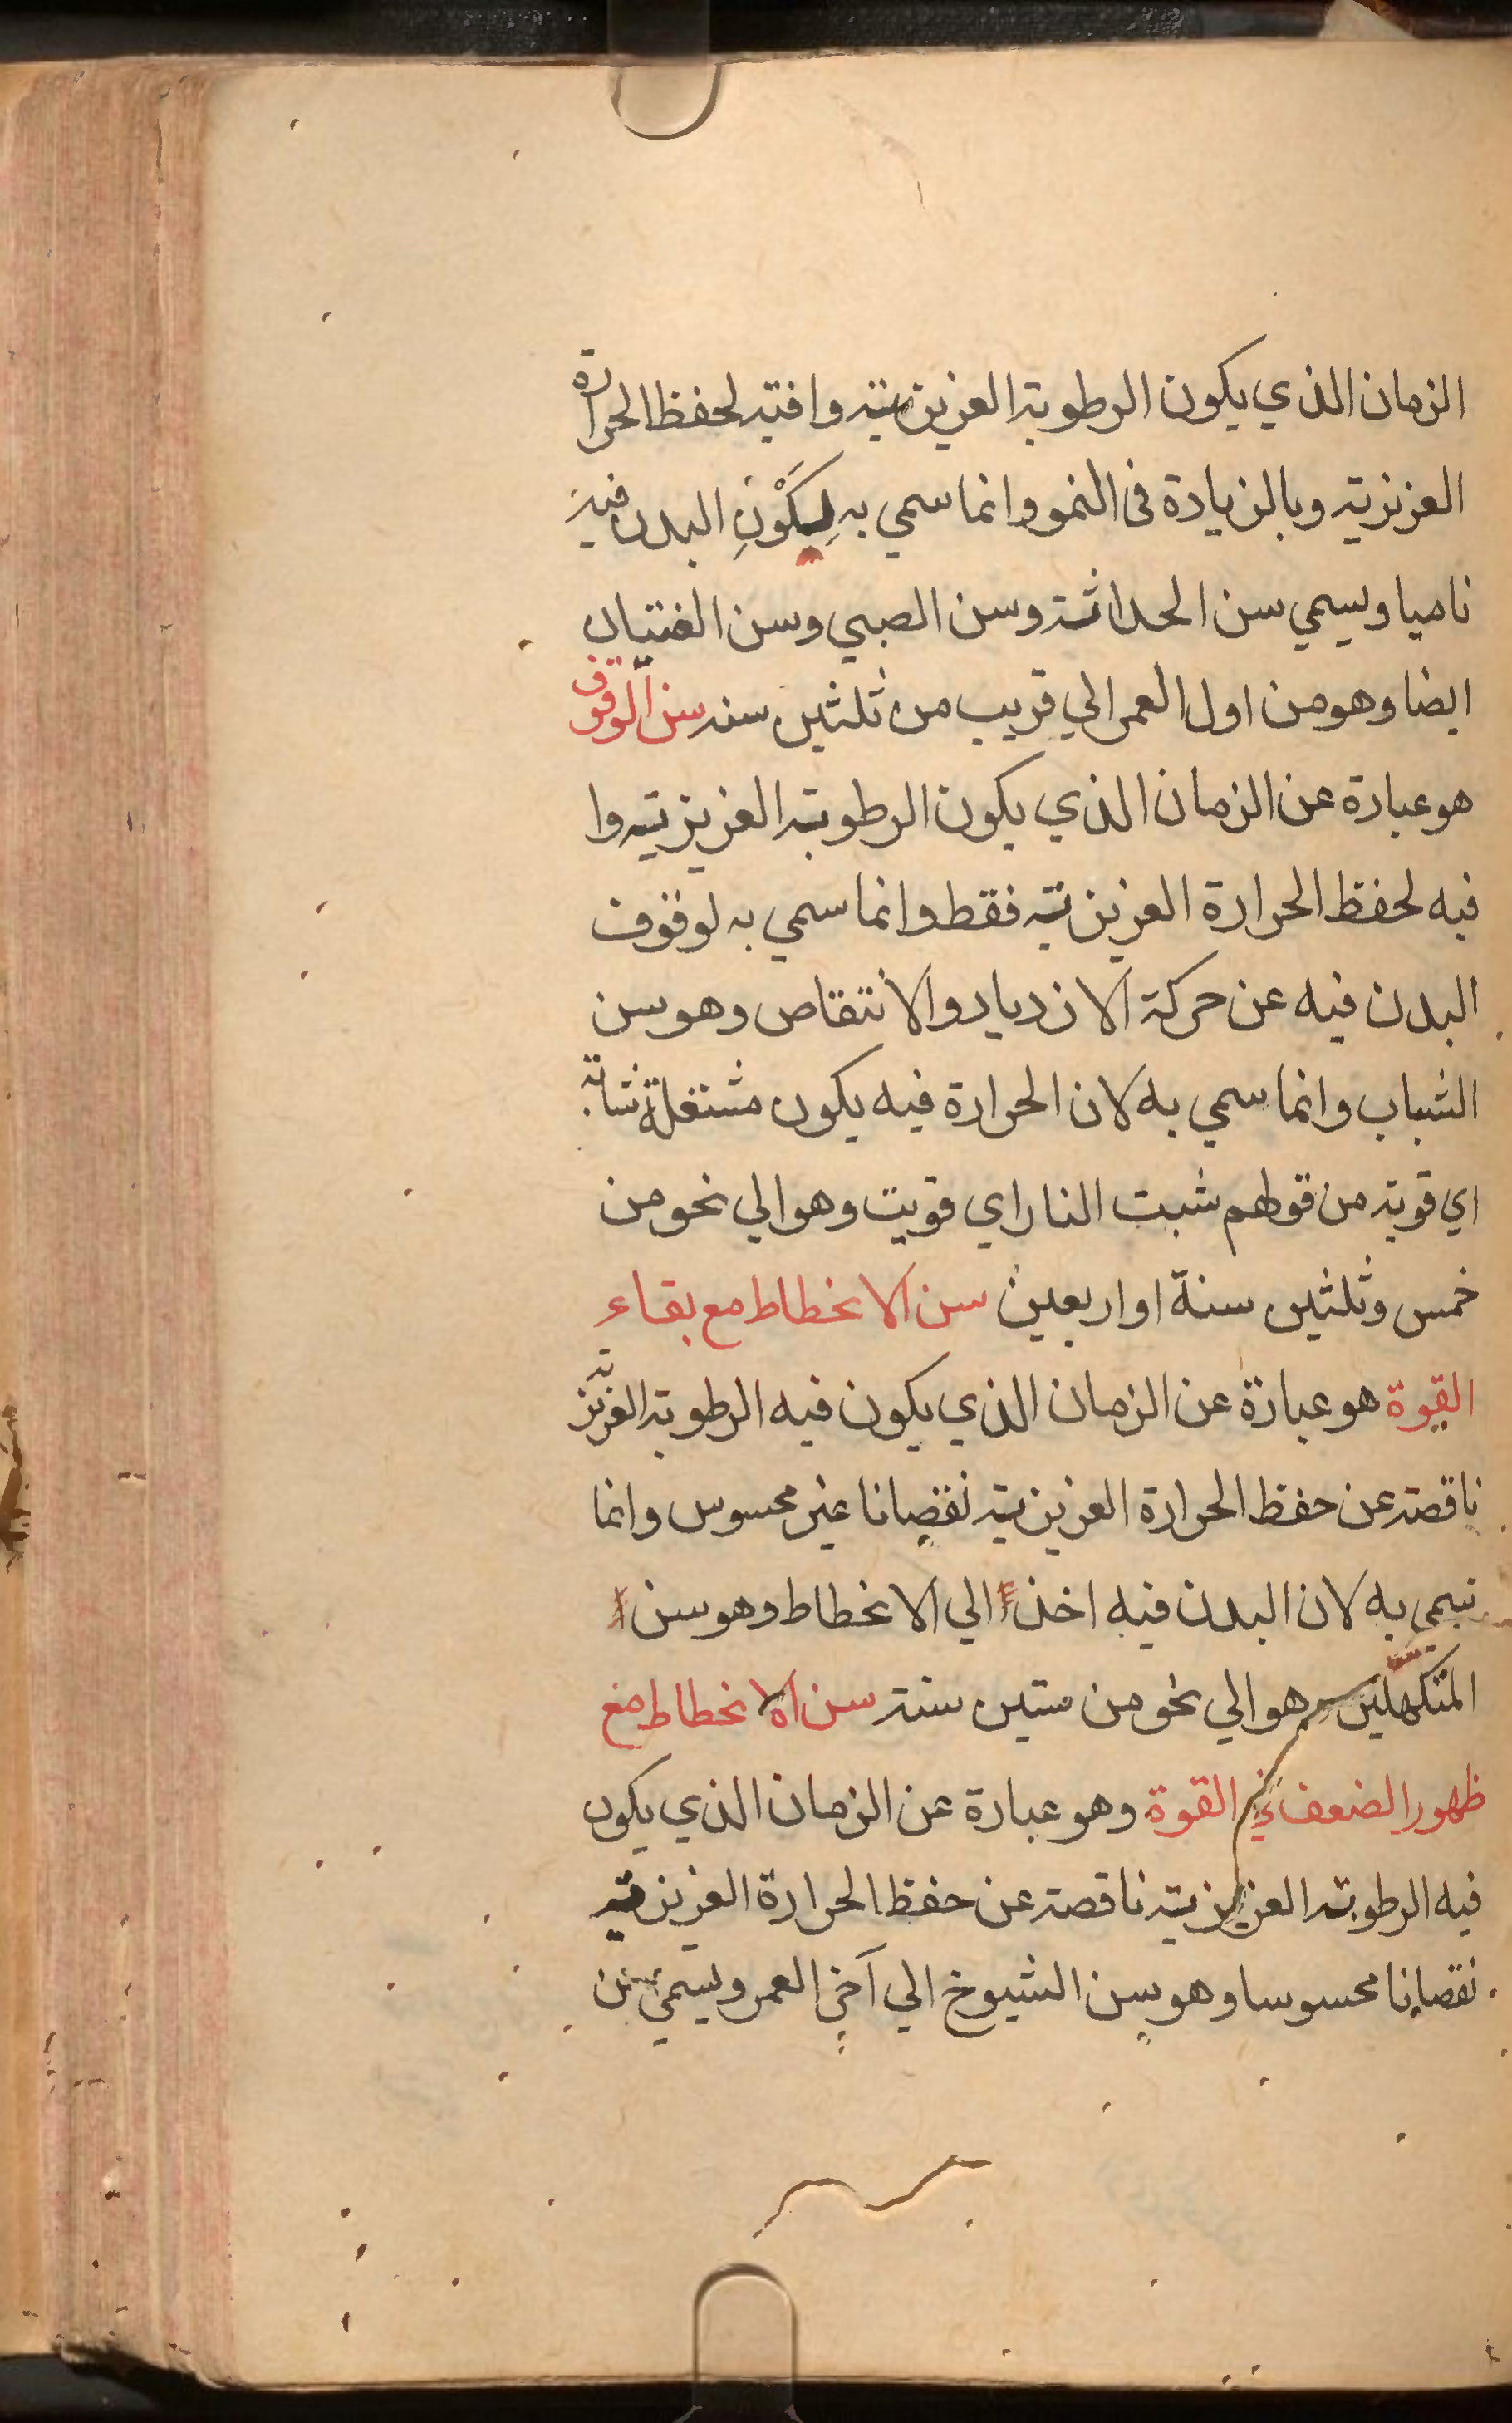 الزمان الذي يكون الرطوبة العزيزية وافية لحفظ الحرارة
العزيزية وبالزيادة فى النمو وانما سمي به لِكَوْنِ البدن فيه
ناميا ويسمي سن الحداثة وسن الصبي وسن الفتيان
ايضا وهو من اول العمر الي قريب من ثلثين سنه سن الوقوف
هو عبارة عن الزمان الذي يكون الرطوبة العزيزية وا
فيه لحفظ الحرارة العزيزية فقط وانما سمي به لوقوف
البدن فيه عن حركة الازدياد والانتقاص وهو سن
الشباب وانما سمي به لان الحرارة فيه يكون مشتعلة شابة
اي قوية من قولهم شبت النار اي قويت وهو الي نحو من
خمس وثلثين سنة او اربعين سن الانحطاط مع بقاء
القوة هو عبارة عن الزمان الذي يكون فيه الرطوبة العزيزية
ناقصة عن حفظ الحرارة العزيزية نقصانا غير محسوس وانما
سمي به لان البدن فيه اخذ الي الانحطاط وهو سن
المتكهلين هو الي نحو من ستين سنة سن الانحطاط مع
ظهور الضعف في القوة وهو عبارة عن الزمان الذي يكون
فيه الرطوبة العزيزية ناقصة عن حفظ الحرارة العزيزية
نقصانا محسوسا وهو سن الشيوخ الي آخر العمر ويسمي سن